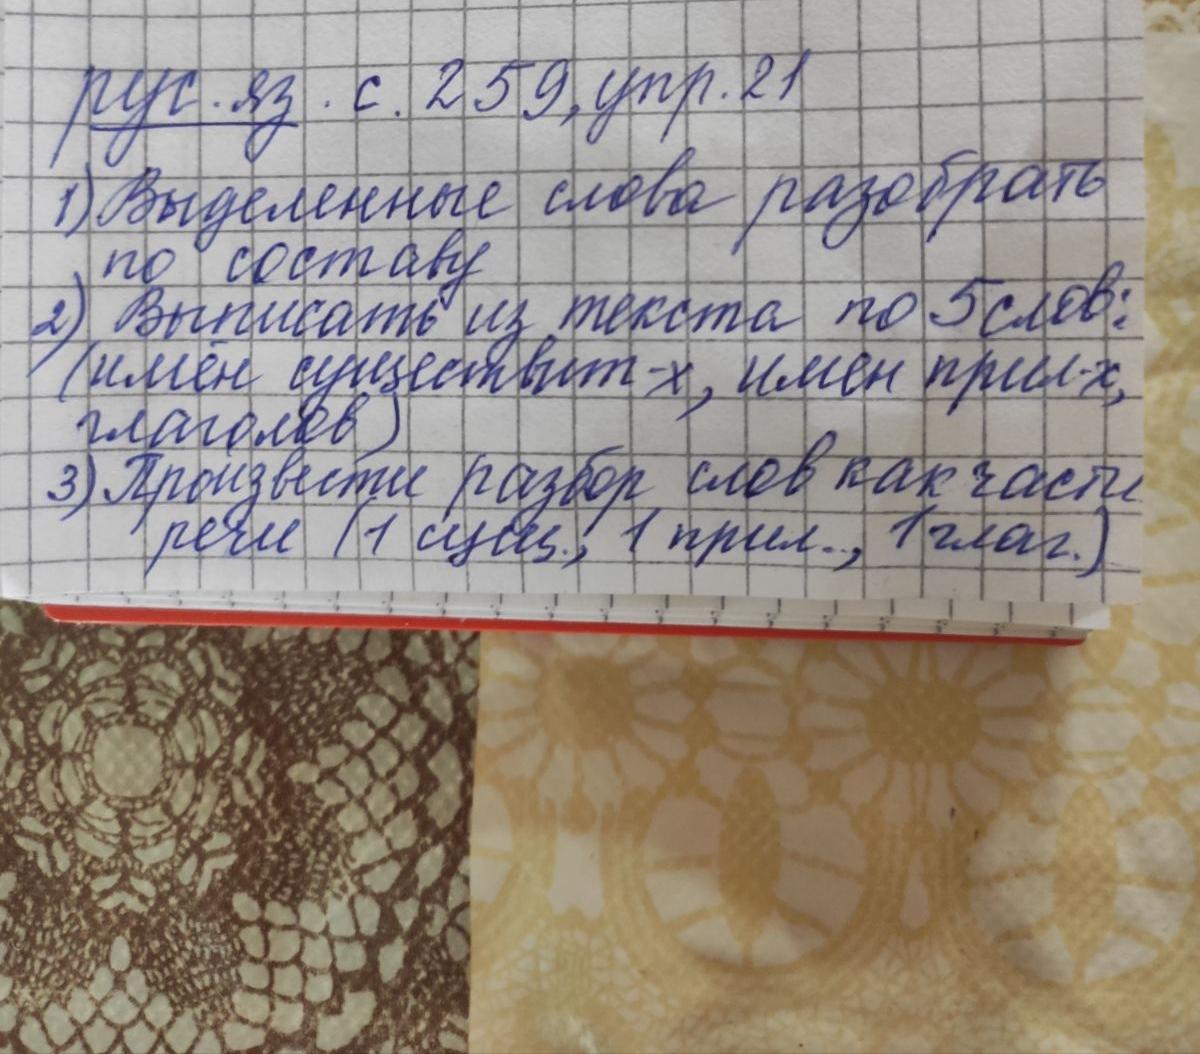 рус. яз. с. 259, упр. 21
1) Выделенные слова разобрать
по составу
2) Выписать из текста по 5 слов:
(имён существит-х, имён прил-х,
глаголов)
3) Произвести разбор слов как части
речи (1 сущ., 1 прил.., 1 глаг.)